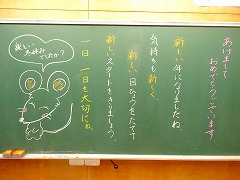 あけまして
おめでとうございます。
新しい年になりましたね。
気持ちも新しく、
新しい目ひょうをたてて
新しいスタートをきりましょう。
一日一日を大切にね。
楽しい
お休み
でしたか？